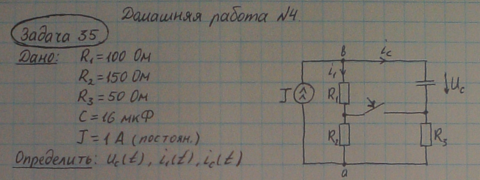 Домашняя работа №4
Задача 35
Дано: R1=100 Ом
R2=150 Ом
R3=50 Ом
C=16 мкФ
J=1 А (постоян.)
Определить: Uc(t), i1(t), ic(t)
в
ic
i1
J
R1
Uc
R2
R3
a